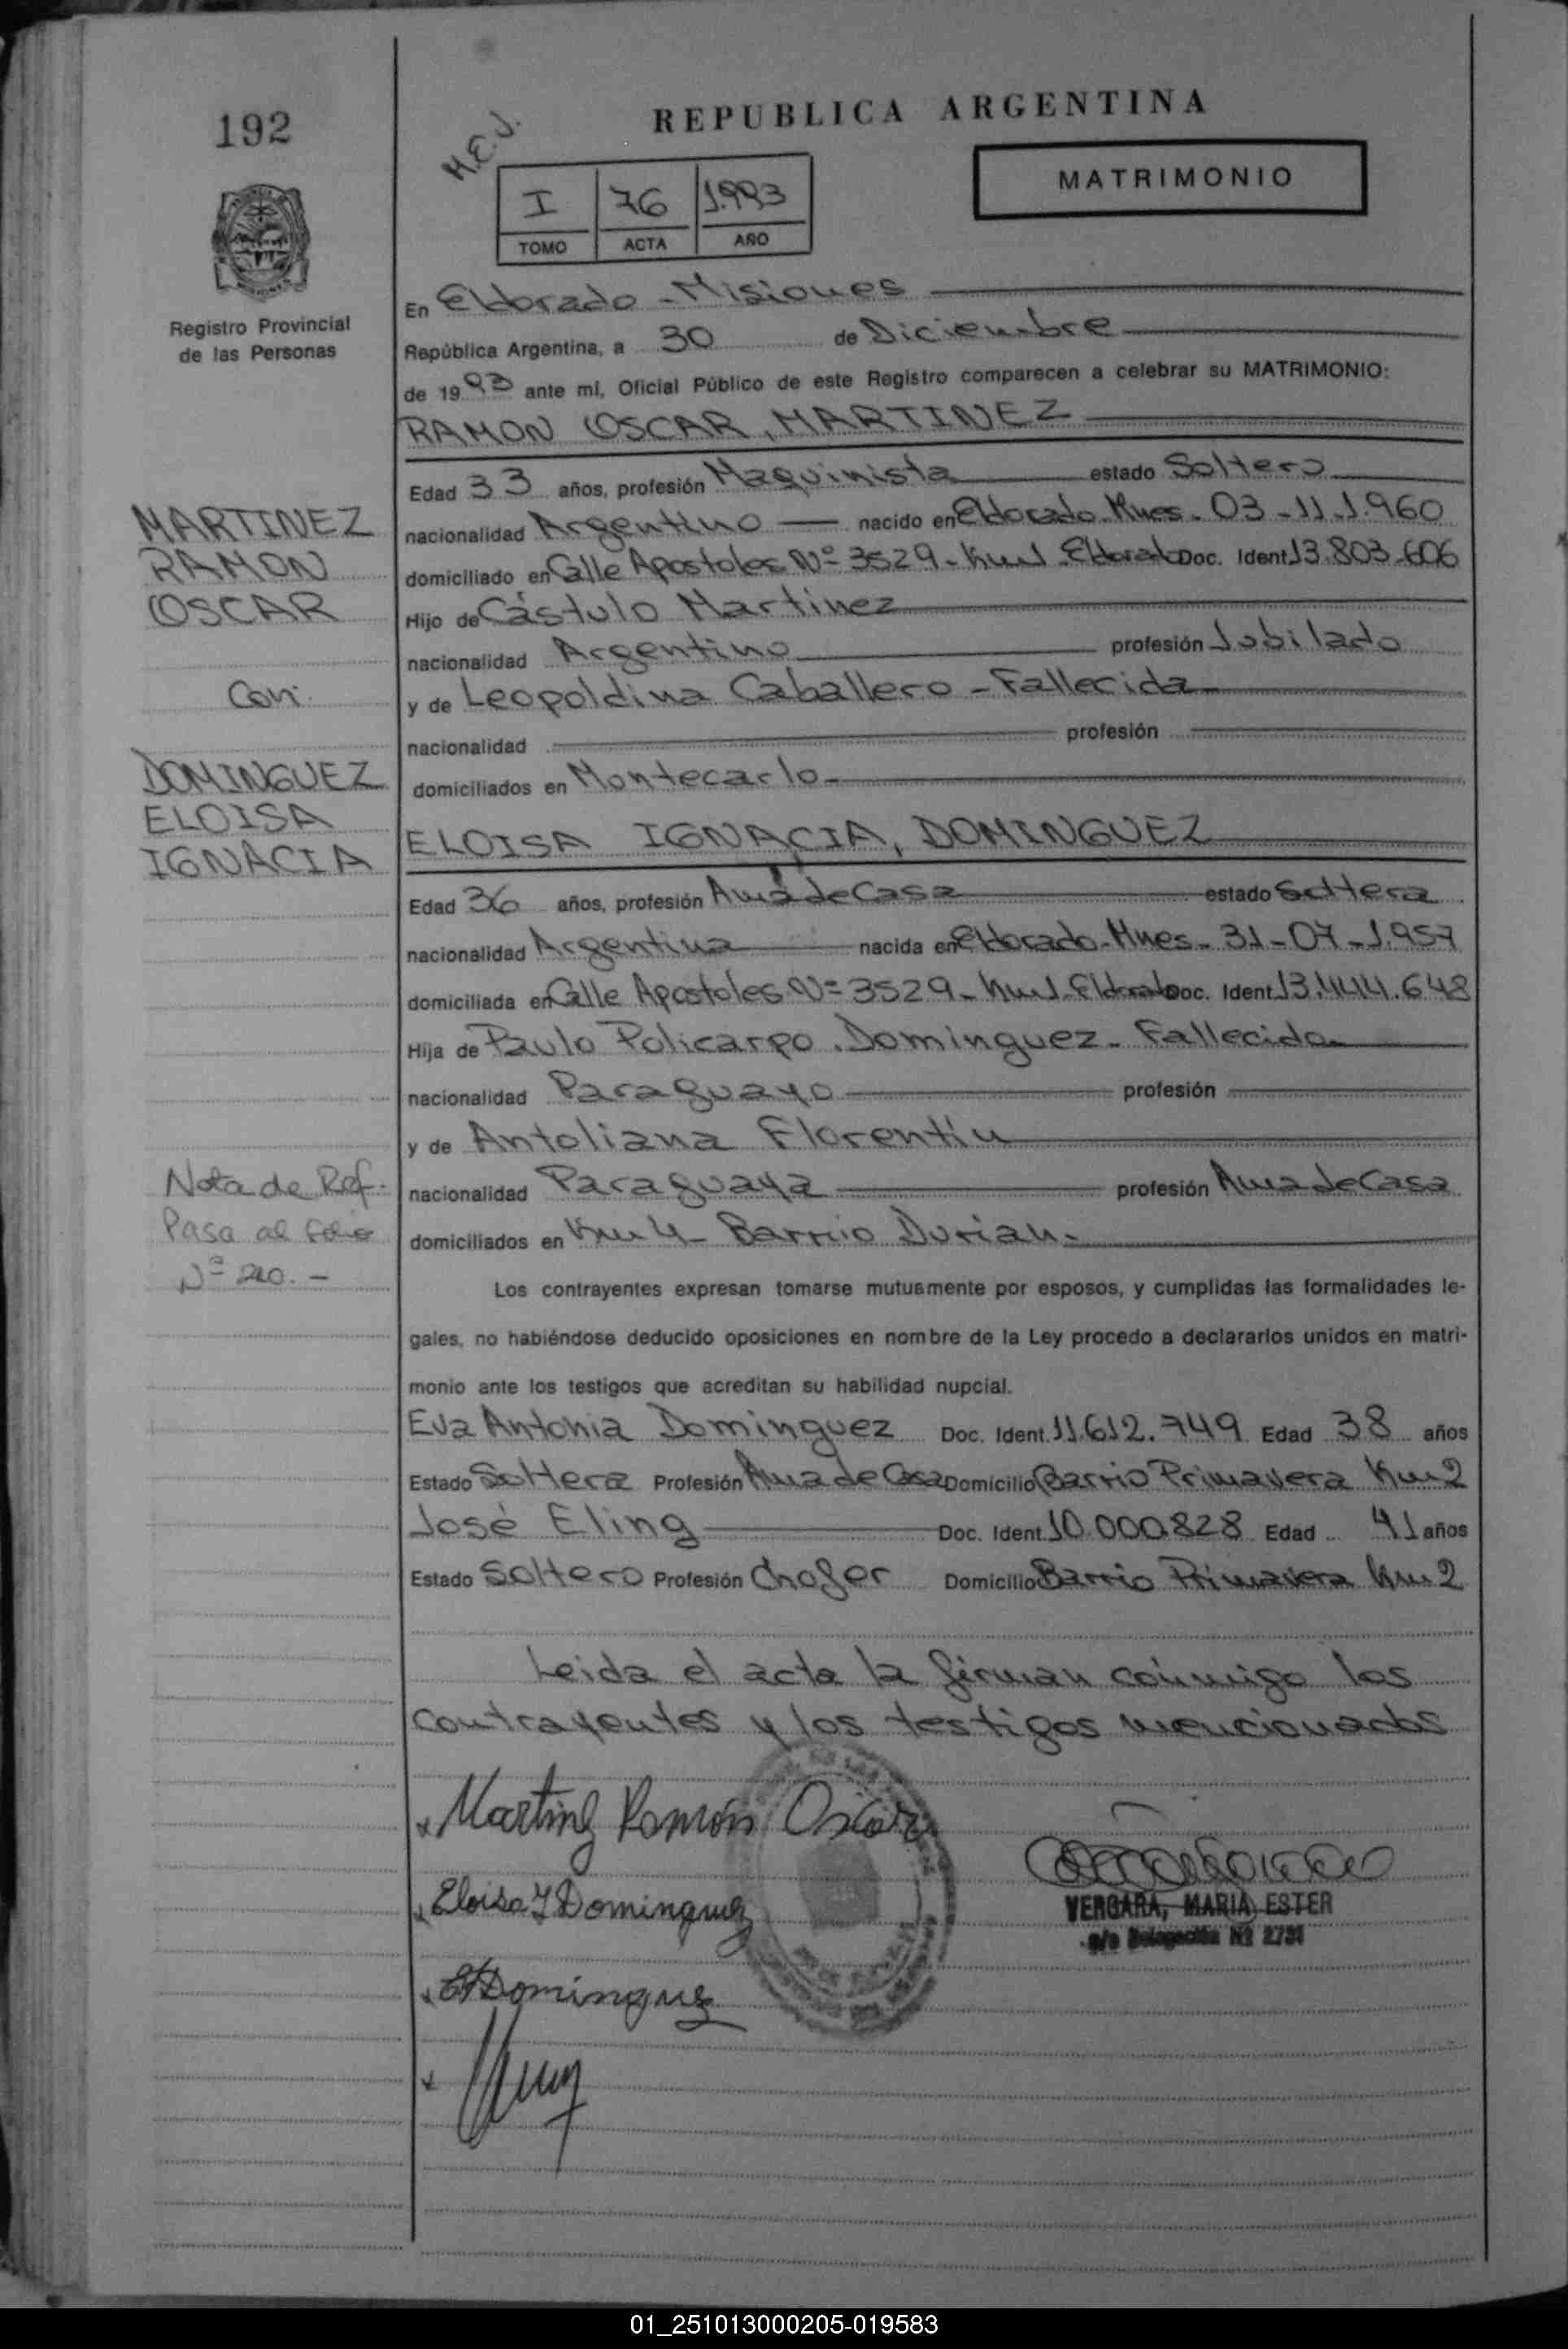 192
REPUBLICA ARGENTINA
M.E.V.
I 76 1.993
TOMO ACTA AÑO
MATRIMONIO
Registro Provincial
de las Personas
En Eldorado - Misiones
República Argentina, a 30 de Diciembre
de 19 93 ante mí, Oficial Público de este Registro comparecen a celebrar su MATRIMONIO:
RAMON OSCAR, MARTINEZ
Edad 33 años, profesión Maquinista estado Soltero
MARTINEZ
RAMON
OSCAR
Con:
DOMINGUEZ
ELOISA
IGNACIA
nacionalidad Argentino nacido en Eldorado Mnes. 03-11-1.960
domiciliado en Calle Apostoles Nº 3529 - Km 1 Eldorado Doc. Ident 13.803.606
Hijo de Cástulo Martinez
nacionalidad Argentino profesión Jubilado
y de Leopoldina Caballero - Fallecida
nacionalidad profesión
domiciliados en Montecarlo
ELOISA IGNACIA, DOMINGUEZ
Edad 36 años, profesión Ama de Casa estado Soltera
nacionalidad Argentina nacida en Eldorado - Mnes - 31-07-1.957
domiciliada en Calle Apostoles Nº 3529 - Km 1 Eldorado Doc. Ident 13.444.648
Hija de Paulo Policarpo Dominguez - Fallecido
nacionalidad Paraguayo profesión
y de Antoliana Florentin
nacionalidad Paraguaya profesión Ama de Casa
domiciliados en Km 4 - Barrio Durian.
Nota de Ref.
Pasa al folio
Nº 210.-
Los contrayentes expresan tomarse mutuamente por esposos, y cumplidas las formalidades le-
gales, no habiéndose deducido oposiciones en nombre de la Ley procedo a declararlos unidos en matri-
monio ante los testigos que acreditan su habilidad nupcial.
Eva Antonia Dominguez Doc. Ident. 11.612.749 Edad 38 años
Estado Soltera Profesión Ama de Casa Domicilio Barrio Primavera Km 2
José Eling Doc. Ident. 10.000.828 Edad 41 años
Estado Soltero Profesión Chofer Domicilio Barrio Primavera Km 2
Leida el acta la firman conmigo los
contrayentes y los testigos mencionados
Martinez Ramón Oscar
Eloisa I Dominguez
EADominguez
VERGARA, MARIA ESTER
a/c Delegación Nº 2731
01_251013000205-019583